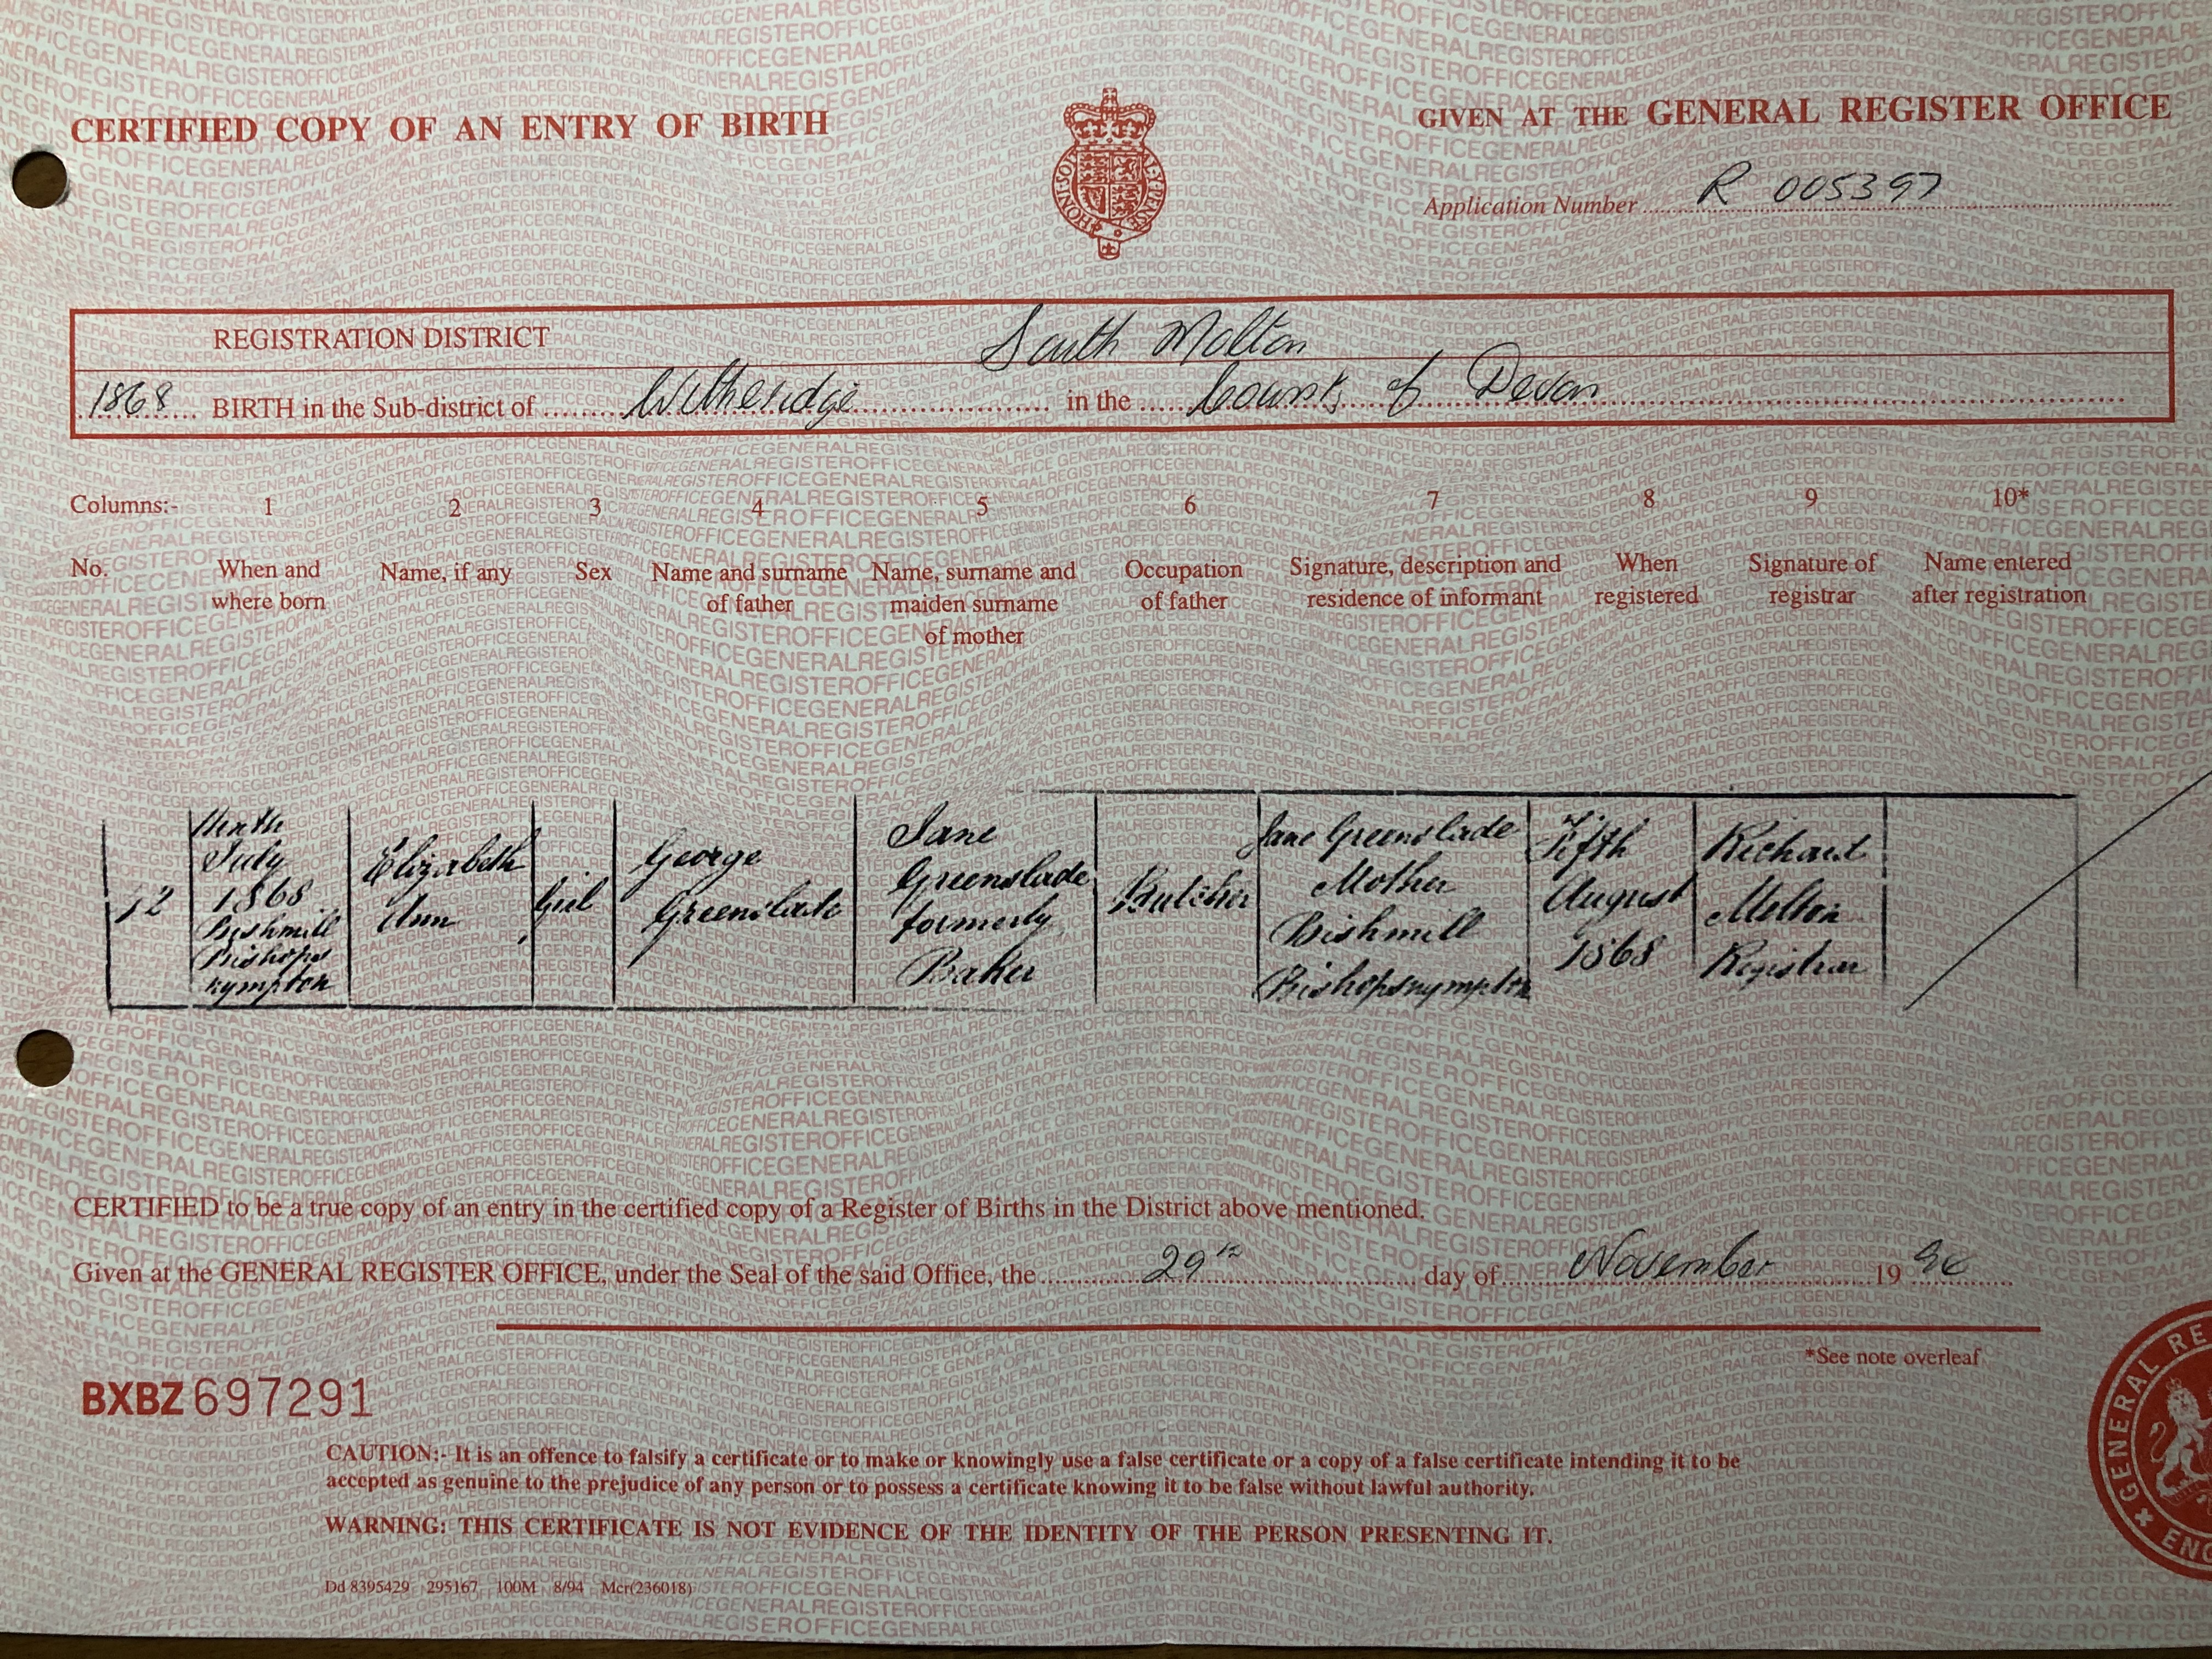 CERTIFIED COPY OF AN ENTRY OF BIRTH
GIVEN AT THE GENERAL REGISTER OFFICE
Application Number R 005397
REGISTRATION DISTRICT South Molton
1868 BIRTH in the Sub-district of Witheridge in the County of Devon
Columns:- 1 2 3 4 5 6 7 8 9 10*
No.
When and
where born
Name, if any
Sex
Name and surname
of father
Name, surname and
maiden surname
of mother
Occupation
of father
Signature, description and
residence of informant
When
registered
Signature of
registrar
Name entered
after registration
12
July
1868
Bishmill
Bishops
nympton
Elizabeth
Ann
Girl
George
Greenslade
Jane
Greenslade
formerly
Baker
Butcher
Jane Greenslade
Mother
Bishmill
Bishopsnympton
Fifth
August
1868
Richard
Melton
Registrar
CERTIFIED to be a true copy of an entry in the certified copy of a Register of Births in the District above mentioned.
Given at the GENERAL REGISTER OFFICE, under the Seal of the said Office, the 29th day of November 19
*See note overleaf
BXBZ 697291
CAUTION:- It is an offence to falsify a certificate or to make or knowingly use a false certificate or a copy of a false certificate intending it to be
accepted as genuine to the prejudice of any person or to possess a certificate knowing it to be false without lawful authority.
WARNING: THIS CERTIFICATE IS NOT EVIDENCE OF THE IDENTITY OF THE PERSON PRESENTING IT.
Dd 8395429 295167 100M 8/94 Mcr(236018)
GENERAL RE
ENG